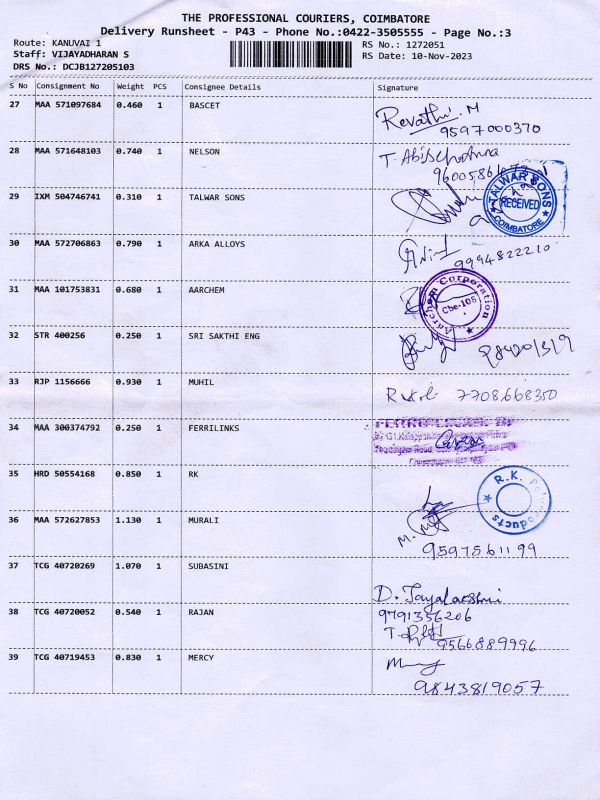 THE PROFESSIONAL COURIERS, COIMBATORE
Delivery Runsheet - P43 - Phone No.:0422-3505555 - Page No.:3
Route: KANUVAI 1
RS No.: 1272051
Staff: VIJAYADHARAN S
RS Date: 10-Nov-2023
DRS No.: DCJB127205103
S No Consignment No Weight PCS Consignee Details Signature
27 MAA 571097684 0.460 1 BASCET Revathi. M
9597000370
28 MAA 571648103 0.740 1 NELSON
29 IXM 504746741 0.310 1 TALWAR SONS
TALWAR SONS
RECEIVED
COIMBATORE
30 MAA 572706863 0.790 1 ARKA ALLOYS
9994822210
31 MAA 101753831 0.680 1 AARCHEM
Aarchem Corporation
Cbe-108
32 STR 400256 0.250 1 SRI SAKTHI ENG
33 RJP 1156666 0.930 1 MUHIL
7708668350
34 MAA 300374792 0.250 1 FERRILINKS
35 HRD 50554168 0.850 1 RK
R.K.
36 MAA 572627853 1.130 1 MURALI
9597561199
37 TCG 40720269 1.070 1 SUBASINI
D. Jayalakshmi
38 TCG 40720052 0.540 1 RAJAN 9791356206
9566889996
39 TCG 40719453 0.830 1 MERCY
9843819057